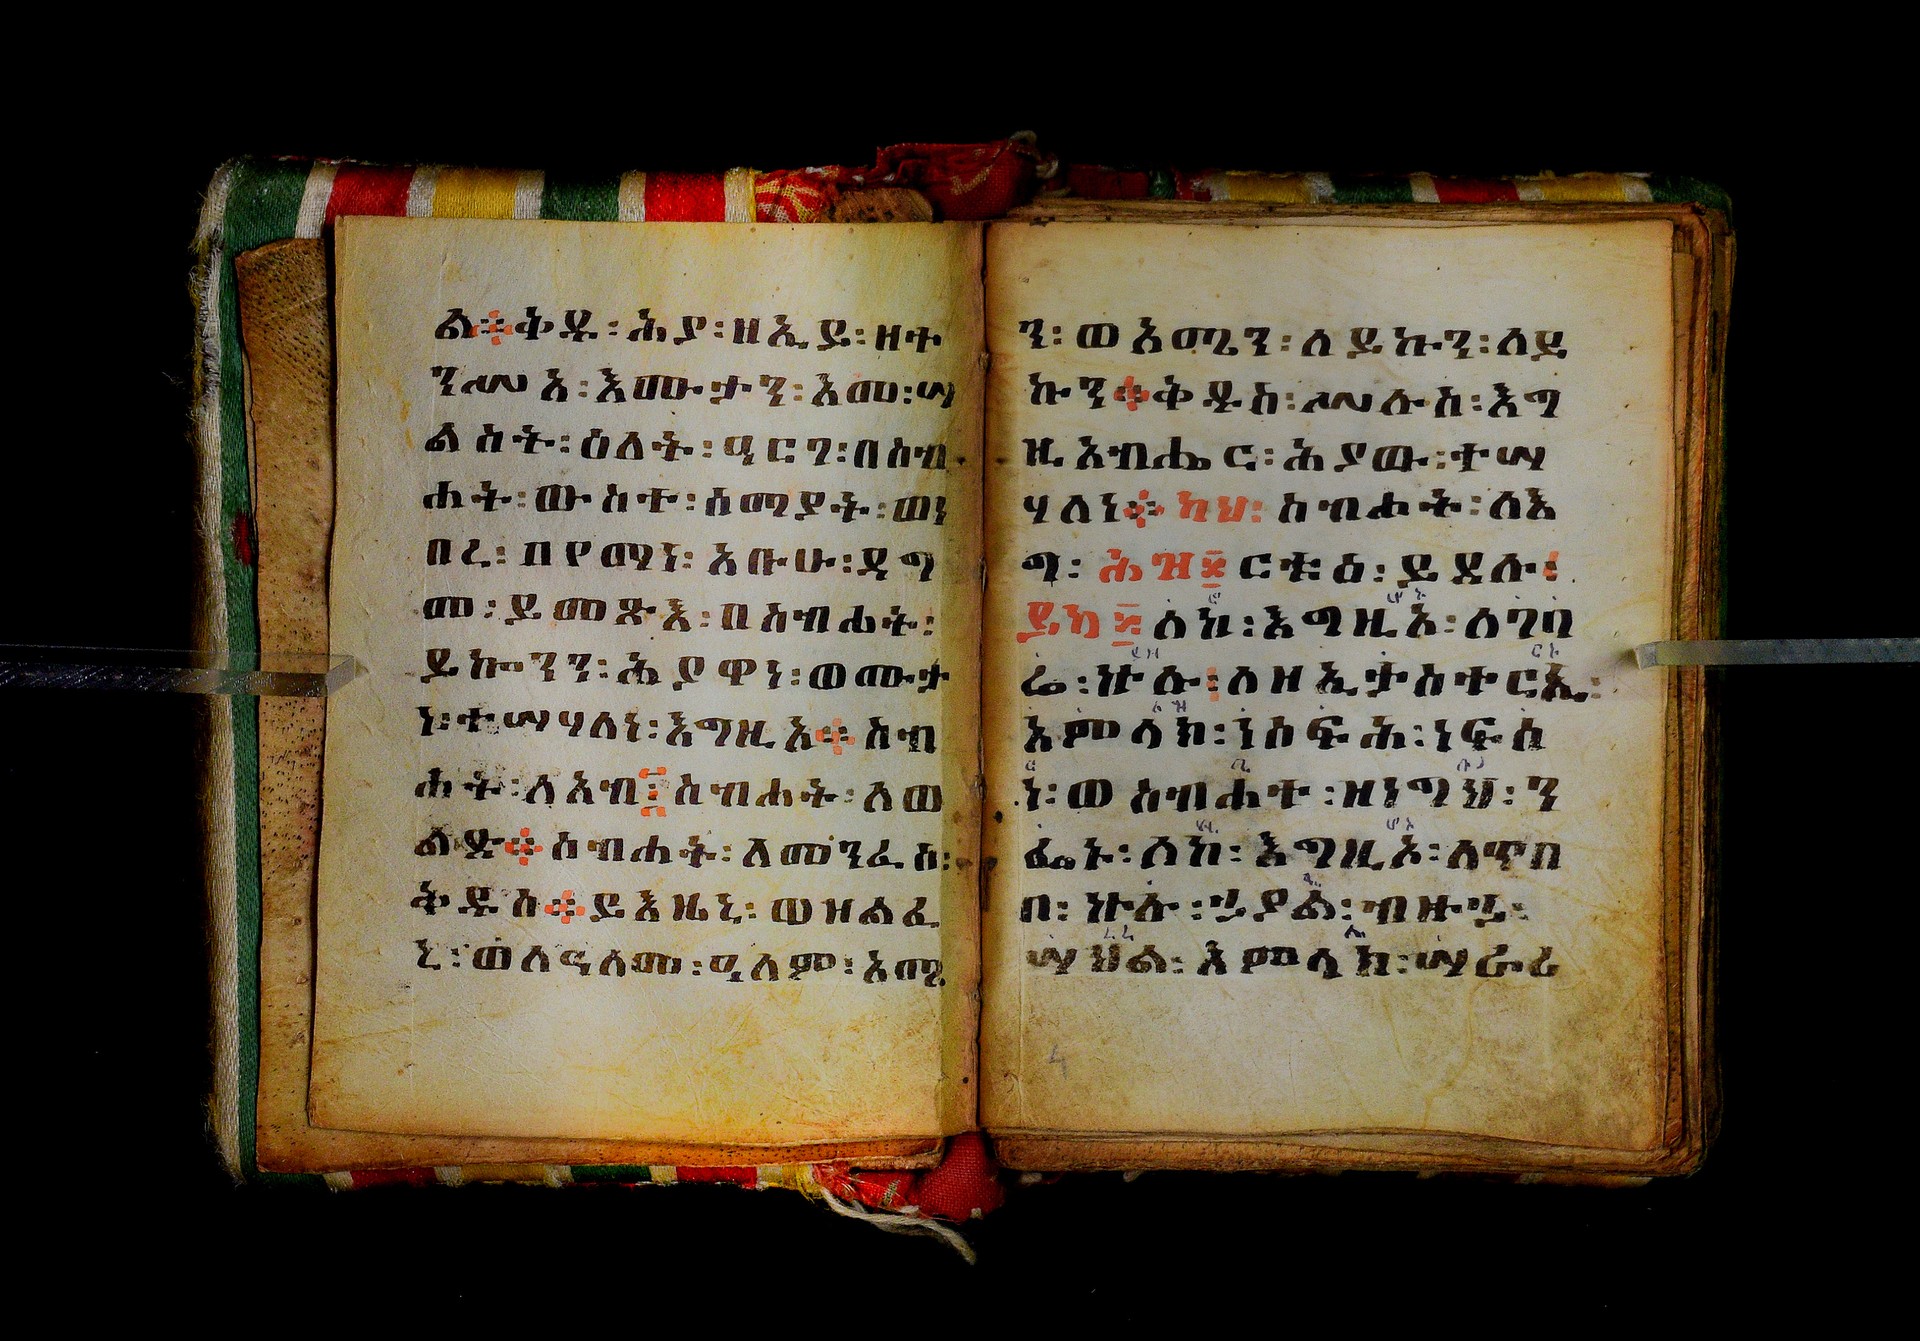 ል፨ ቅዱ፡ ሕያ፡ ዘኢይ፡ ዘተ
ንሥአ፡ እሙታን፡ እመ፡ ሣ
ልስት፡ ዕለት፡ ዓርገ፡ በስብ
ሐት፡ ውስተ፡ ሰማያት፡ ወነ
በረ፡ በየማነ፡ አቡሁ፡ ዳግ
መ፡ ይመጽእ፡ በስብሐት፡
ይኰንን፡ ሕያዋነ፡ ወሙታ
ነ፡ ተሣሃለነ፡ እግዚአ፨ ስብ
ሐት፡ ለአብ፨ ስብሐት፡ ለወ
ልድ፨ ስብሐት፡ ለመንፈስ፡
ቅዱስ፨ ይእዜኒ፡ ወዘልፈ
ኒ፡ ወለዓለመ፡ ዓለም፡ አሜ
ን፡ ወአሜን፡ ለይኩን፡ ለይ
ኩን፨ ቅዱስ፡ ሥሉስ፡ እግ
ዚአብሔር፡ ሕያው፡ ተሣ
ሃለነ፨ ካህ፡ ስብሐት፡ ለእ
ግ፡ ሕዝ፤ ርቱዕ፡ ይደሉ፡
ይካ፤ ሰከ፡ እግዚአ፡ ለገባ
ሬ፡ ኵሉ፡ ለዘኢታስተርኢ፡
አምላክ፡ ንሰፍሕ፡ ነፍሰ
ነ፡ ወስብሐተ፡ ዘነግህ፡ ን
ፌኑ፡ ለከ፡ እግዚኦ፡ ለጥበ
በ፡ ኵሉ፡ ኃያል፡ ብዙኃ፡
ሣህል፡ አምላክ፡ ሣራሪ
4